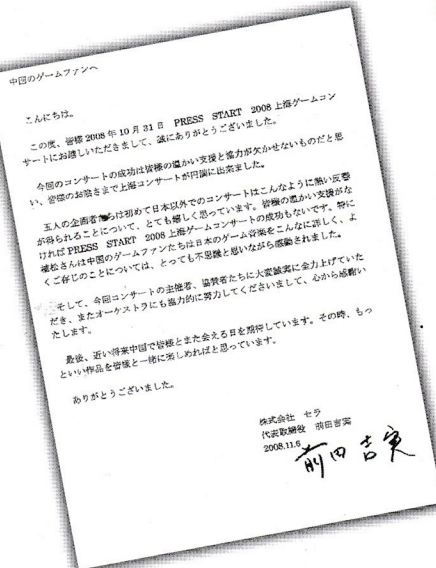 中国のゲームファンへ
こんにちは。
この度、皆様 2008 年 10 月 31 日　PRESS　START　2008 上海ゲームコン
サートにお越しいただきまして、誠にありがとうございました。
今回のコンサートの成功は皆様の温かい支援と協力が欠かせないものだと思
い、皆様のお陰さまで上海コンサートが円満に出来ました。
五人の企画者らは初めて日本以外でのコンサートはこんなように熱い反響
が得られることについて、とても嬉しく思っています。皆様の温かい支援がな
ければ PRESS　START　2008 上海ゲームコンサートの成功もないです。特に
植松さんは中国のゲームファンたちは日本のゲーム音楽をこんなに詳しく、よ
くご存じのことについては、とっても不思議と思いながら感動されました。
そして、今回コンサートの主催者、協賛者たちに大変誠実に全力上げていた
だき、またオーケストラにも協力的に努力してくださいまして、心から感謝い
たします。
最後、近い将来中国で皆様とまた会える日を期待しています。その時、もっ
といい作品を皆様と一緒に楽しめればと思っています。
ありがとうございました。
株式会社　セラ
代表取締役　前田吉実
2008.11.6
前田吉実